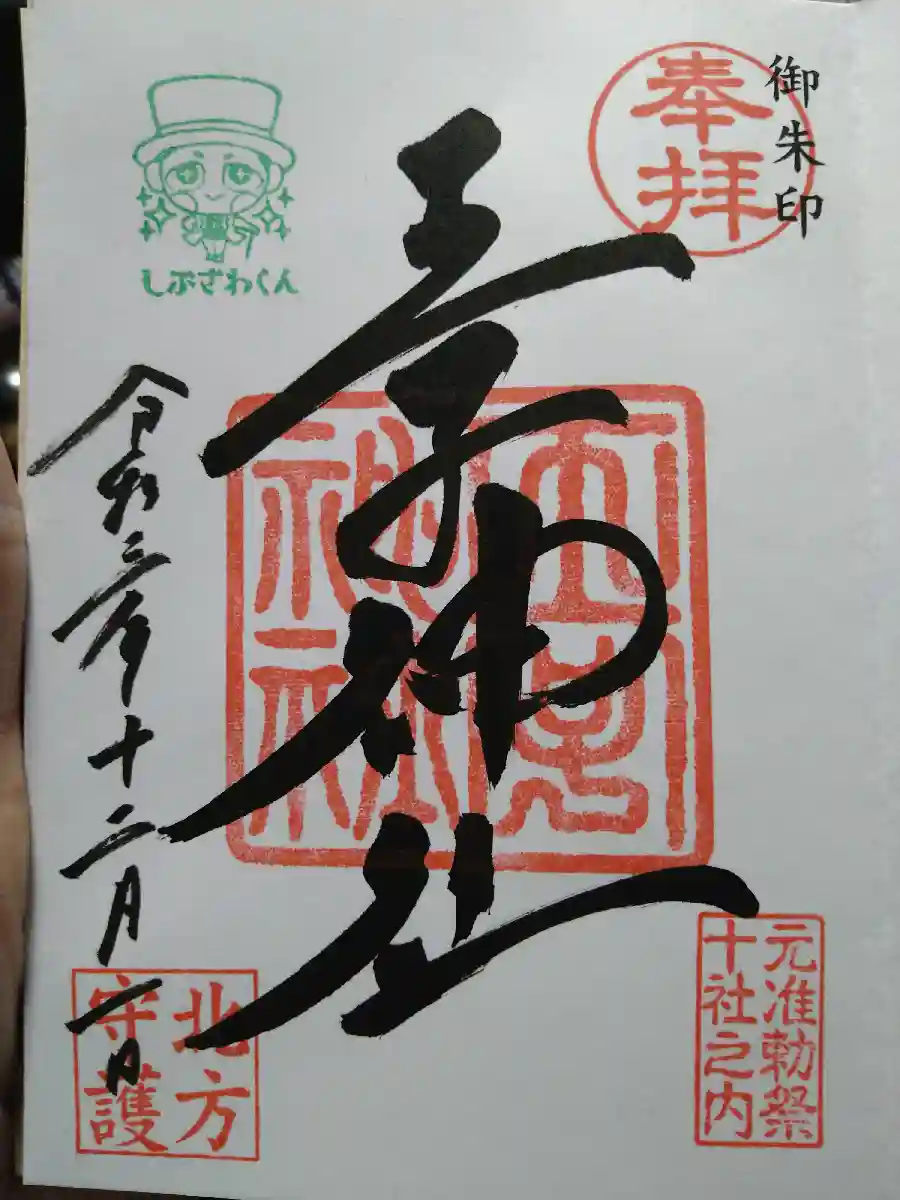 御朱印
奉拝
王子神社
王子神社
元准勅祭
十社之内
しぶざわくん
令和三年十二月一日
北方
守護